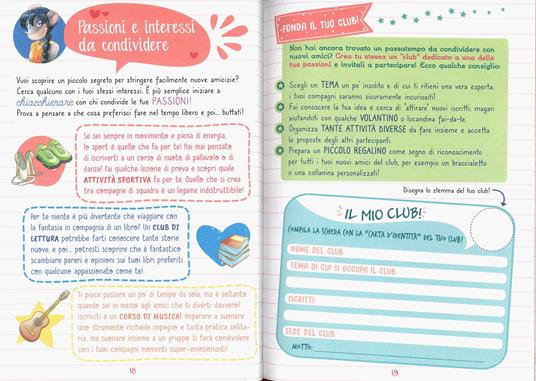 Passioni e interessi
da condividere
Vuoi scoprire un piccolo segreto per stringere facilmente nuove amicizie?
Cerca qualcuno con i tuoi stessi interessi. È più semplice iniziare a
chiacchierare con chi condivide le tue PASSIONI!
Prova a pensare a che cosa preferisci fare nel tempo libero e poi... buttati!
Se sei sempre in movimento e piena di energia,
lo sport è quello che fa per te! Hai mai pensato
di iscriverti a un corso di nuoto, di pallavolo o di
danza? Fai qualche lezione di prova e scopri quale
ATTIVITÀ SPORTIVA fa per te. Quello che si crea
tra compagne di squadra è un legame indistruttibile!
Per te niente è più divertente che viaggiare con
la fantasia in compagnia di un libro? Un CLUB DI
LETTURA potrebbe farti conoscere tante storie
nuove; e poi... potresti scoprire che è fantastico
scambiare pareri e opinioni sui tuoi libri preferiti
con qualcuno appassionato come te!
Ti piace passare un po' di tempo da sola, ma è soltanto
quando sei in mezzo agli amici che ti diverti davvero?
Iscriviti a un CORSO DI MUSICA! Imparare a suonare
uno strumento richiede impegno e tanta pratica solita-
ria, ma suonare insieme a un gruppo ti farà condividere
con i tuoi compagni momenti super-emozionanti!
18
FONDA IL TUO CLUB!
Non hai ancora trovato un passatempo da condividere con
nuovi amici? Crea tu stessa un "club" dedicato a una delle
tue passioni e invitali a partecipare! Ecco qualche consiglio:
Scegli un TEMA un po' insolito e di cui ti ritieni una vera esperta:
i tuoi compagni saranno sicuramente incuriositi!
Fai conoscere la tua idea e cerca di "attirare" nuovi iscritti, magari
aiutandoti con qualche VOLANTINO o locandina fai-da-te.
Organizza TANTE ATTIVITÀ DIVERSE da fare insieme e accetta
le proposte degli altri partecipanti.
Prepara un PICCOLO REGALINO come segno di riconoscimento
per tutti i tuoi nuovi amici del club, per esempio un braccialetto
o una collanina personalizzati!
Disegna lo stemma del tuo club!
IL MIO CLUB!
COMPILA LA SCHEDA CON LA "CARTA D'IDENTITÀ" DEL TUO CLUB!
NOME DEL CLUB:
TEMA DI CUI SI OCCUPA IL CLUB:
ISCRITTI:
SEDE DEL CLUB:
MOTTO:
19